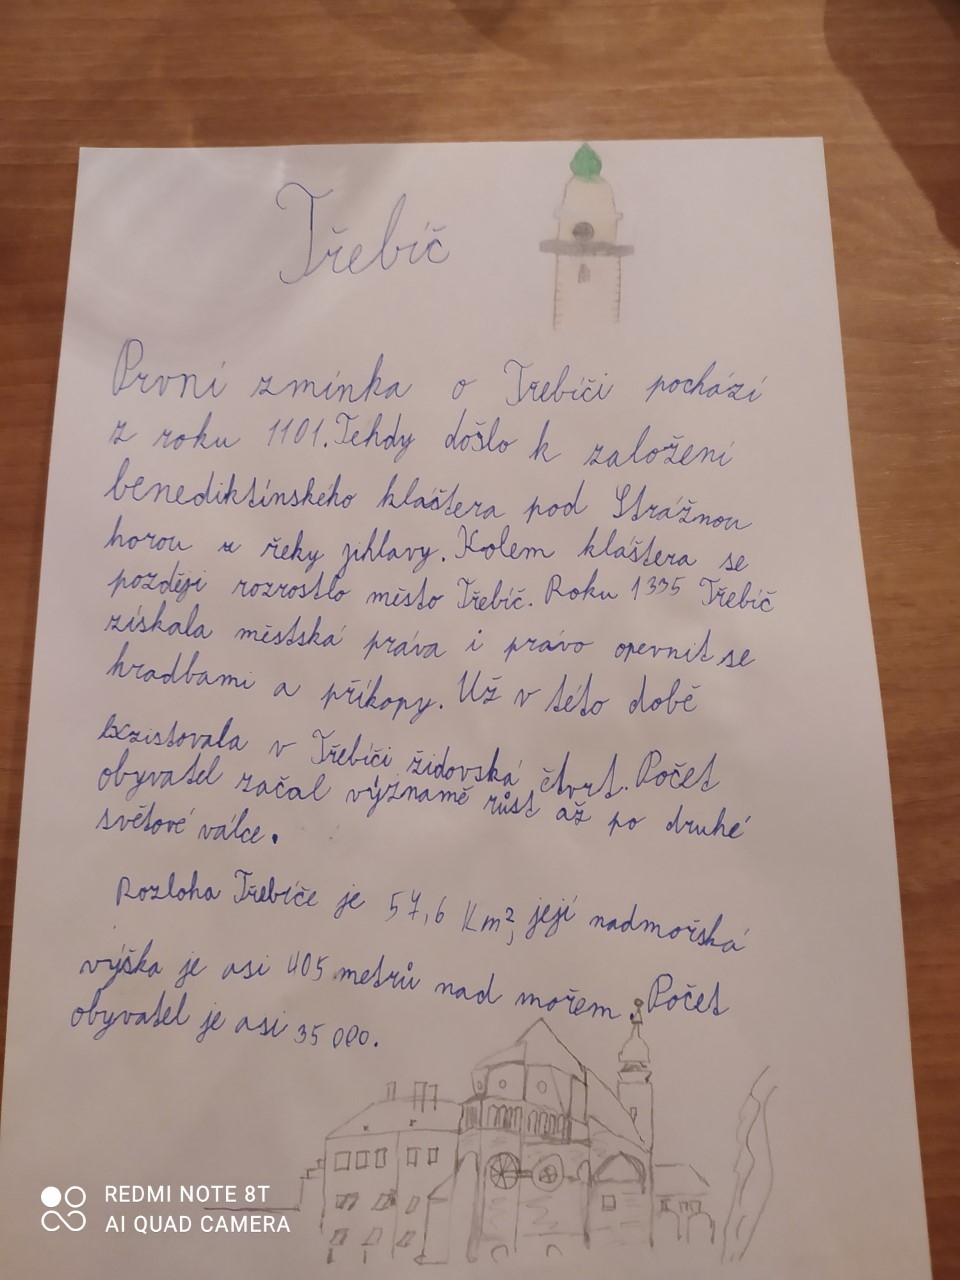 Třebíč
První zmínka o Třebíči pochází
z roku 1101. Tehdy došlo k založení
benediktínského kláštera pod Strážnou
horou u řeky jihlavy. Kolem kláštera se
později rozrostlo město Třebíč. Roku 1335 Třebíč
získala městská práva i právo opevnit se
hradbami a příkopy. Už v této době
existovala v Třebíči židovská čtvrt. Počet
obyvatel začal významě růst až po druhé
světové válce.
Rozloha Třebíče je 57,6 Km², její nadmořská
výška je asi 405 metrů nad mořem. Počet
obyvatel je asi 35 000.
REDMI NOTE 8T
AI QUAD CAMERA